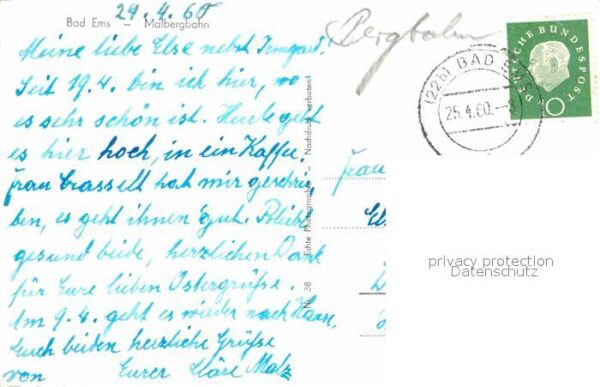 24.4.60
Bad Ems – Malbergbahn
Meine liebe Else nebst Irmgard!
Seit 19.4. bin ich hier, wo
es sehr schön ist. Heute geht
es hier hoch, in ein Kaffee.
Frau Crasselt hat mir geschrie-
ben, es geht ihnen gut. Bleibt
gesund beide, herzlichen Dank
für Eure lieben Ostergrüße.
Am 9.4. geht es wieder nach Hause,
Euch beiden herzliche Grüße
von Eurer Kläre Malz
Nr. 28 Echte Photographie – Nachdruck verboten!
Bergbahn
(22b) BAD
25.4.60.-8
DEUTSCHE BUNDESPOST
10
Frau
privacy protection
Datenschutz